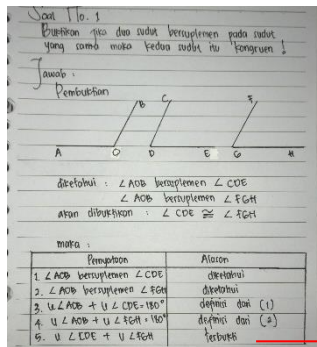 Soal No. 1
Buktikan jika dua sudut bersuplemen pada sudut
yang sama maka kedua sudut itu kongruen !
Jawab :
Pembuktian
B C F
A O D E G H
diketahui : ∠ AOB bersuplemen ∠ CDE
∠ AOB bersuplemen ∠ FGH
akan dibuktikan : ∠ CDE ≅ ∠ FGH
maka :
Pernyataan Alasan
1. ∠ AOB bersuplemen ∠ CDE diketahui
2. ∠ AOB bersuplemen ∠ FGH diketahui
3. u ∠ AOB + u ∠ CDE = 180° definisi dari (1)
4. u ∠ AOB + u ∠ FGH = 180° definisi dari (2)
5. u ∠ CDE + u ∠ FGH terbukti